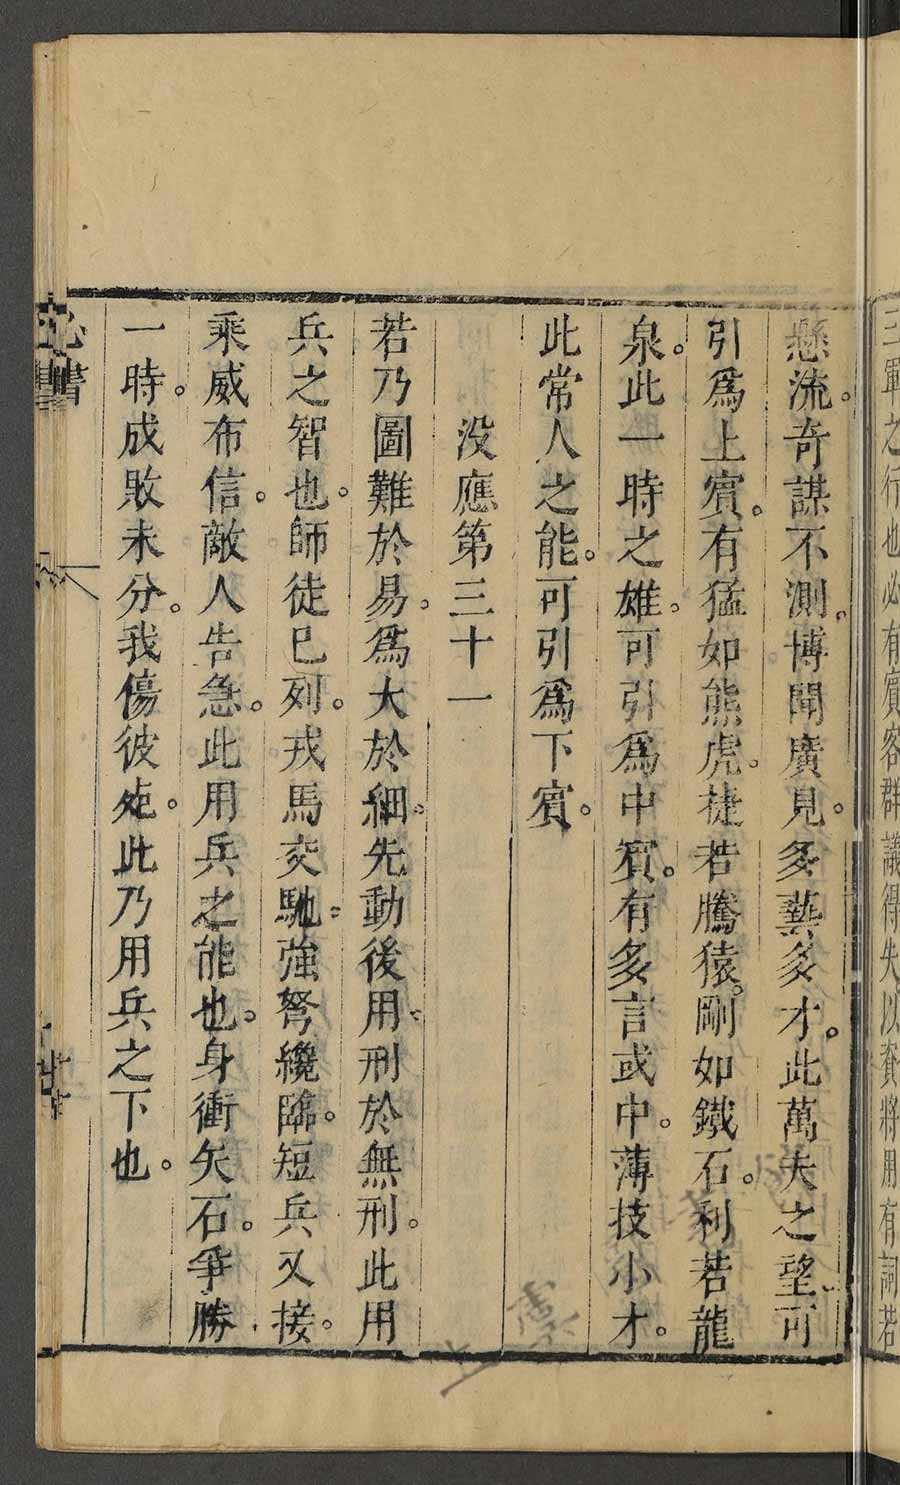 三軍之行也必有賓客群議得失以資將用有詞若
懸流。奇謀不測。博聞廣見。多藝多才。此萬夫之望。可
引爲上賓。有猛如熊虎。捷若騰猿。剛如鐵石。利若龍
泉。此一時之雄。可引爲中賓。有多言或中。薄技小才。
此常人之能。可引爲下賓。
没應第三十一
若乃圖難於易。爲大於細。先動後用。刑於無刑。此用
兵之智也。師徒已列。戎馬交馳。強弩纔臨。短兵又接。
乘威布信。敵人告急。此用兵之能也。身衝矢石。爭勝
一時。成敗未分。我傷彼死。此乃用兵之下也。
心書